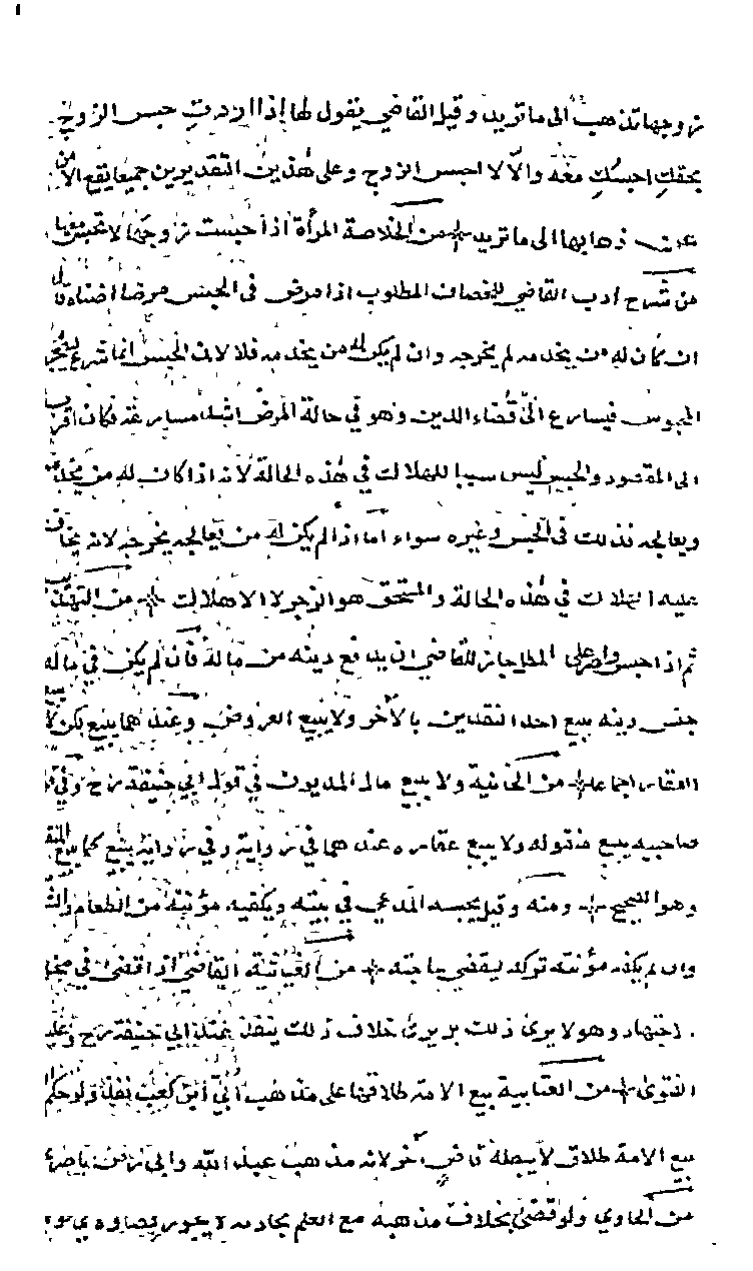 زوجها تذهب الى ما تريد وقيل القاضي يقول لها إذا اردت حبس الزوج
بحقك احبسك معه والا لا احبس الزوج وعلى هذين التقديرين جميعا يقع الامن
عن ذهابها الى ما تريد من الخلاصة المرأة اذا حبست زوجها لا تحبس معها
من شرح ادب القاضي للخصاف المطلوب اذا مرض في الحبس مرضا اضناه
ان كان له من يخدمه لم يخرجه وان لم يكن له من يخدمه فلا لان الحبس انما شرع
المحبوس فيسارع الى قضاء الدين وهو في حالة المرض اشد مسارعة فكان اقرب
الى المقصود والحبس ليس سببا للهلاك في هذه الحالة لانه اذا كان له من يخدمه
ويعالجه فذلك في الحبس وغيره سواء اما اذا لم يكن له من يعالجه يخرجه لانه يخاف
عليه الهلاك في هذه الحالة والمستحق هو الزجر لا الاهلاك من التهذيب
ثم اذا حبس واصر على المطل جاز للقاضي ان يدفع دينه من ماله فان لم يكن في ماله
جنس دينه يبيع احد النقدين بالآخر ولا يبيع العروض وعندهما يبيع لكن لا يبيع
العقار اجماعا من الخانية ولا يبيع مال المديون في قول ابي حنيفة رح وفي
صاحبيه يبيع منقوله ولا يبيع عقاره عندهما في رواية وفي رواية يبيع كما يبيع
وهو الصحيح ومنه وقيل يحبسه المدعي في بيته ويكفيه مؤنته من الطعام
وان لم يكفه مؤنته تركه ليقضي حاجته من الغياثية القاضي اذا قضى في
اجتهاد وهو لا يرى ذلك بل يرى خلاف ذلك ينفذ عند ابي حنيفة رح وعليه
الفتوى من العتابية بيع الامة طلاقها على مذهب أبي أبن كعب نفذ ولو حكم
بيع الامة طلاق لا يبطله قاض آخر لانه مذهب عبد الله وابي
من الحاوي ولو قضى بخلاف مذهبه مع العلم لا يجوز قضاؤه